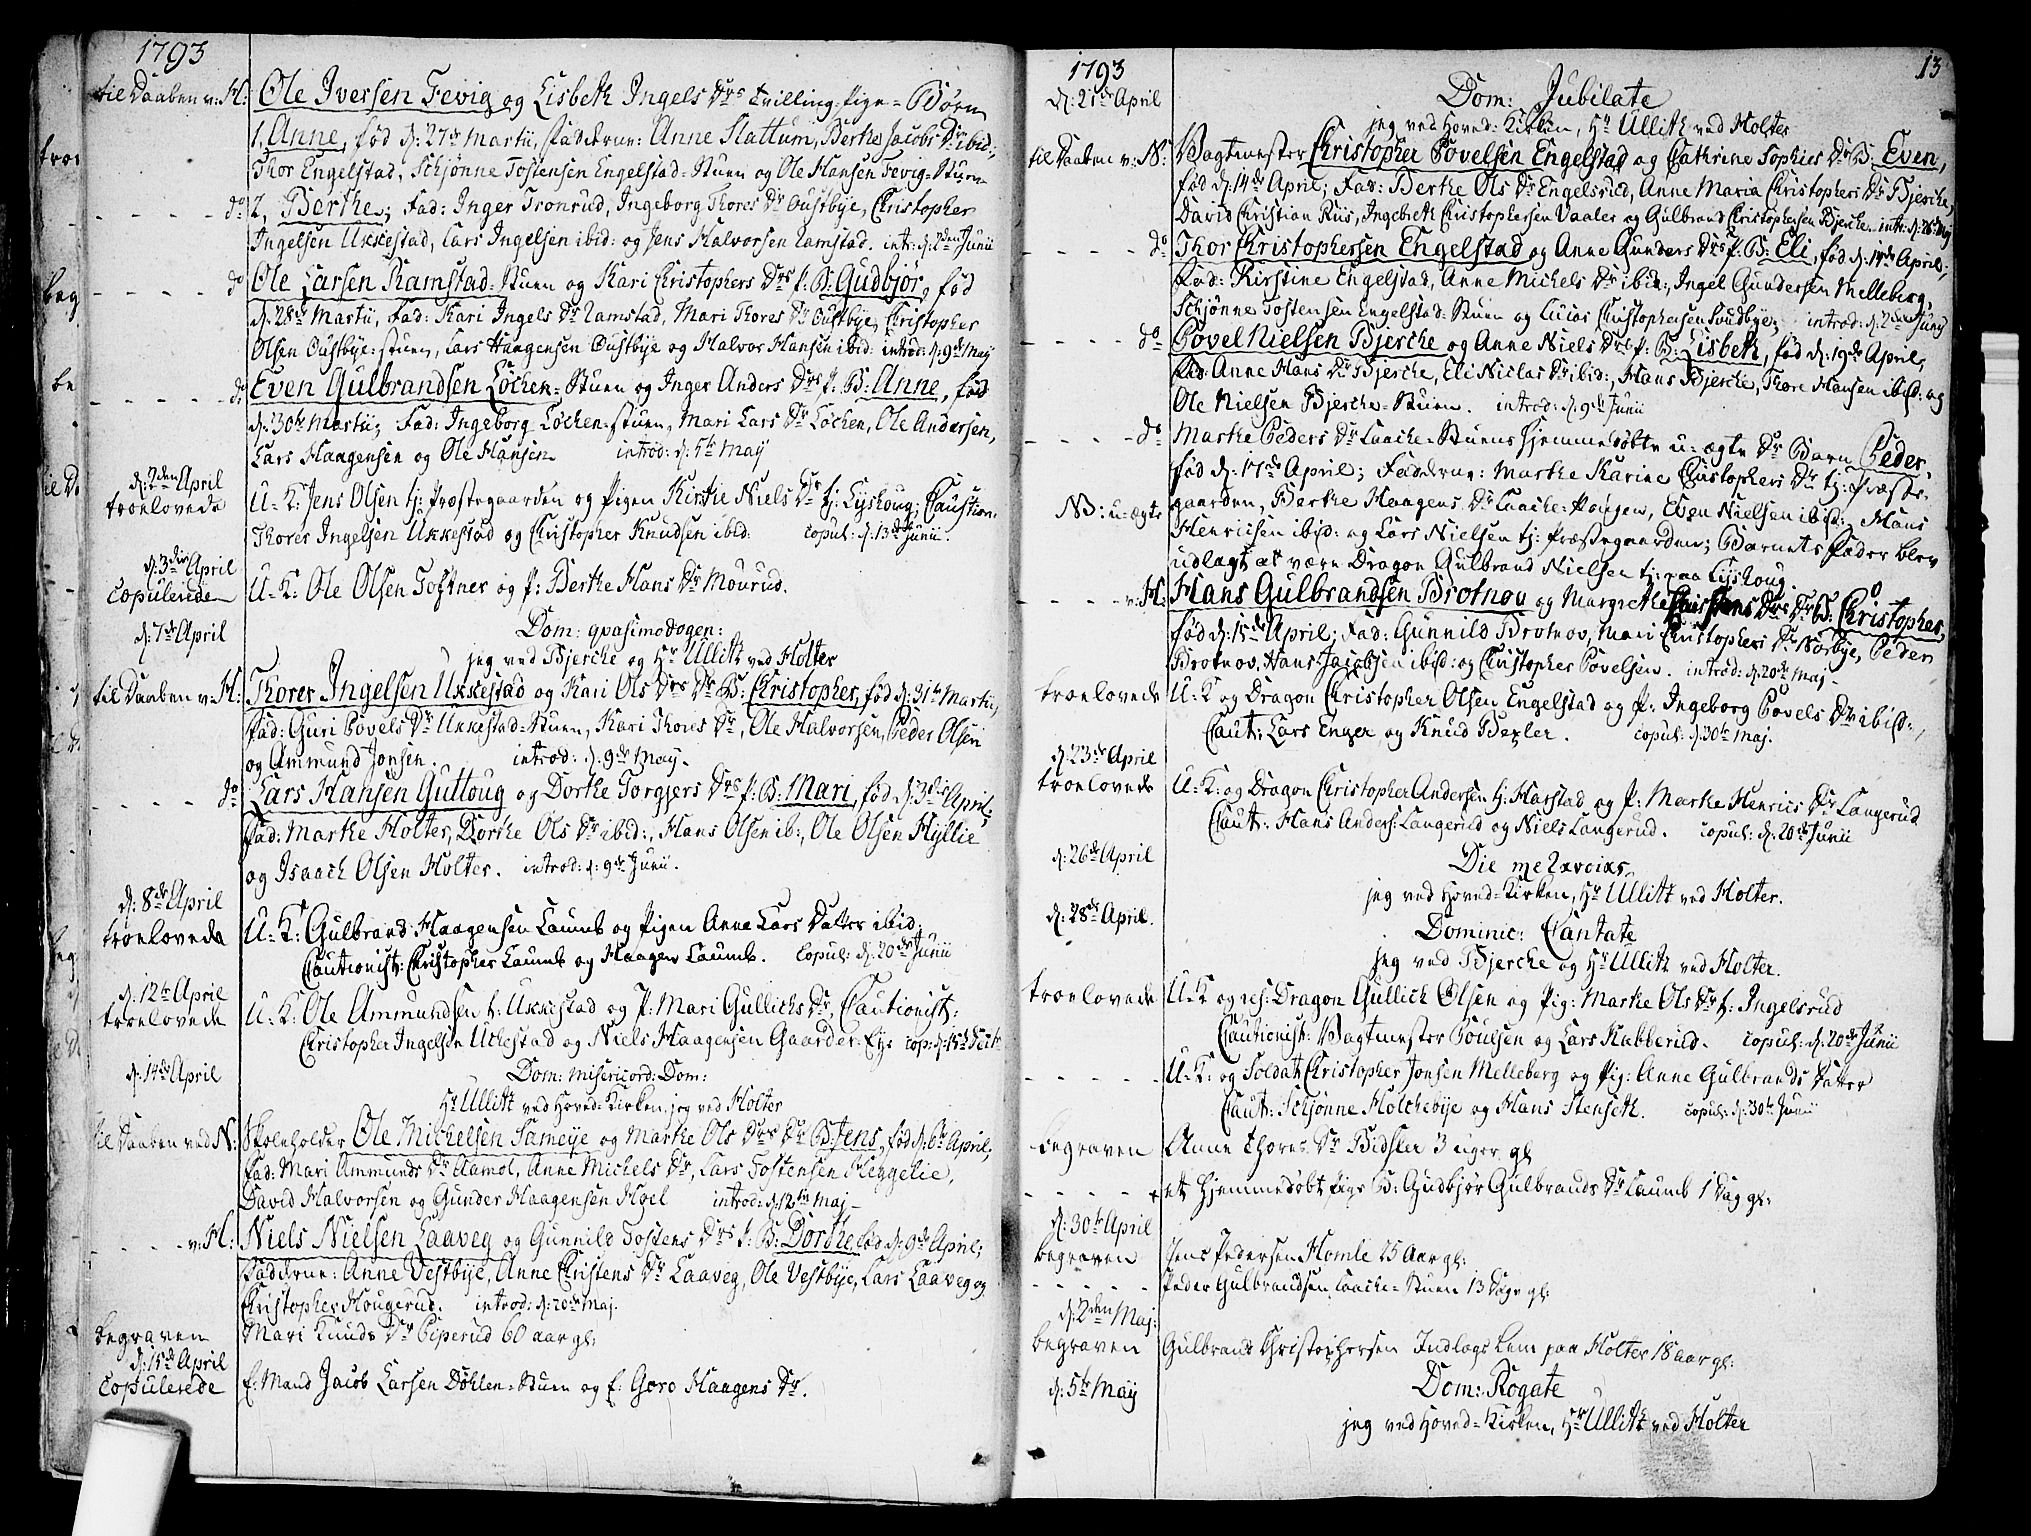 1793
til Daaben v: H: Ole Iversen Fevig og Lisbeth Ingels Drs Tvilling-Pige-Børn
1, Anne, fød d: 27de Martii, Faddrene: Anne Slattum, Berthe Jacobs Dr ibid:,
Thor Engelstad, Schjønne Tostensen Engelstad-Stuen og Ole Hansen Fevig-Stuen
do 2, Berthe; Fad: Inger Tronrud, Ingeborg Thores Dr Oustbye, Christopher
Ingelsen Ukkestad, Lars Ingelsen ibid: og Jens Halvorsen Ramstad. intr: d: 2den Junii
do Ole Larsen Ramstad-Stuen og Kari Christophers Drs P. B: Gudbjør, fød
d: 28de Martii, Fad: Kari Ingels Dr Ramstad, Mari Thores Dr Oustbye, Christopher
Olsen Oustbye-stuen, Lars Haagensen Oustbye og Halvor Hansen ibid: introd: d: 9de May
do Even Gulbrandsen Løchen-Stuen og Inger Anders Drs P. B: Anne, fød
d: 30te Martii; Fad: Ingeborg Løchen-stuen, Mari Lars Dr Løchen, Ole Andersen,
Lars Haagensen og Ole Hansen introd: d: 5te May
d: 2den April
troelovede U-K: Jens Olsen tj: Præstegaarden og Pigen Kirstie Niels Dr tj: Lyshoug; Caution:
Thores Ingelsen Ukkestad og Christopher Knudsen ibid: copul: d: 13de Junii.
d: 3die April
Copulerede U-K: Ole Olsen Toftner og P: Berthe Hans Dr Mourud.
d: 7de April Dom: qvasimodogen:
jeg ved Bjerche og Hr Ullitz ved Holter
til Daaben v: H: Thores Ingelsen Ukkestad og Kari Ols Drs Dr B: Christopher, fød d: 31te Martii,
Fad: Guri Povels Dr Ukkestad-Stuen, Kari Thores Dr, Ole Halvorsen, Peder Olsen
og Ammund Jonsen. introd: d: 9de May.
do Lars Hansen Guttoug og Dorthe Torgjers Drs P: B: Mari, fød d: 3die April,
Fad: Marthe Holter, Dorthe Ols Dr ibid:, Hans Olsen ib:, Ole Olsen Hyllie
og Isaach Olsen Holter. introd: d: 9de Junii.
d: 8de April
troelovede U-K: Gulbrand Haagensen Laumb og Pigen Anne Lars Datter ibid:
Cautionist: Christopher Laumb og Haagen Laumb. Copul: d: 20de Junii
d: 12te April
troelovede U-K: Ole Ammundsen t: Ukkestad og P: Mari Gullichs Dr, Cautionist:
Christopher Ingelsen Uchestad og Niels Haagensen Gaarder-Eye cop: d: 15de
d: 14de April Dom: Misericord: Dom:
Hr Ullitz ved Hoved-Kirken, jeg ved Holter
til Daaben ved N: Skoleholder Ole Michelsen Sameye og Marthe Ols Drs Dr B: Jens, fød d: 6te April,
Fad: Mari Ammunds Dr Aamol, Anne Michels Dr, Lars Tostensen Heggelie,
David Halvorsen og Gunder Haagensen Hoel introd: d: 12te Maj
v: H: Niels Nielsen Laaveg og Gunnild Tostens Drs P: B: Dorthe, fød d: 9de April;
Faddrene: Anne Vestbye, Anne Christens Dr Laaveg, Ole Vestbye, Lars Laaveg og
Christopher Hougerud. introd: d: 20de Maj.
begraven Mari Knuds Dr Piperud 60 aar gl:
d: 15de April
Copulerede E: Mand Jacob Larsen Døhlen-Stuen og E: Goro Haagens Dr.
1793 13
d: 21de April Dom: Jubilate
jeg ved Hoved-Kirken, Hr Ullitz ved Holter
til Daaben v: N: Vagtmester Christopher Povelsen Engelstad og Cathrine Sophies Dr B: Even,
fød d: 14de April; Fad: Berthe Ols Dr Engelsrud, Anne Maria Christophers Dr Bjerche,
David Christian Riis, Ingebreth Christophersen Vaaler og Gulbrand Christophersen Bjerche. intr: d: 26de May
do Thor Christophersen Engelstad og Anne Gunders Drs P. B: Eli, fød d: 14de April;
Fad: Kirstine Engelstad, Anne Michels Dr ibid:, Ingel Gundersen Melleberg,
Schjønne Tostensen Engelstad-Stuen og Lucas Christophersen Sundbye; introd: d: 2den Junij
do Povel Nielsen Bjerche og Anne Niels Drs P. B: Lisbeth, fød d: 19de April,
Fad: Anne Hans Dr Bjerche, Eli Niclas Dr ibid:, Hans Bjerche, Thore Hansen ibid: og
Ole Nielsen Bjerche-Stuen. introd: d: 9de Junii
do Marthe Peders Dr Laache-Stuens hjemmedøbte u-ægte Dr Barn Peder,
fød d: 17de April; Faddrene: Marthe Karine Christophers Dr tj: Præste-
N B: u-ægte gaarden, Berthe Haagens Dr Laache-Hougen, Even Nielsen ibid:, Hans
Henricsen ibid: og Lars Nielsen tj: Præstegaarden; Barnets Fader blev
udlagt at være Dragon Gulbrand Nielsen tj: paa Lyshoug.
v: H: Hans Gulbrandsen Brotnov og Margrethe Christens Drs Dr B: Christopher,
fød d: 15de April; Fad: Gunnild Brotnov, Mari Christophers Dr Nordbye, Peder
Brotnov, Hans Jacobsen ibid: og Christopher Povelsen. introd: d: 20de Maj
troelovede U-K og Dragon Christopher Olsen Engelstad og P: Ingeborg Povels Dr ibid:,
Caut: Lars Enger og Knud Bexler. copul: d: 30te Maj.
d: 23de April
troelovede U-K: og Dragon Christopher Andersen tj: Harstad og P: Marthe Henrics Dr Langerud
Caut: Hans Anders: Langerild og Niels Langerud. copul: d: 20de Junii
d: 26de April Die μελανοιας
jeg ved Hoved-Kirken, Hr Ullitz ved Holter.
d: 28de April. Dominic: Cantate
jeg ved Bjerche og Hr Ullitz ved Holter.
troelovede U-K og res: Dragon Gullich Olsen og Pig: Marthe Ols Dr t: Ingelsrud
Cautionist: Vagtmester Poulsen og Lars Kabberild. copul: d: 20de Junii
U-K: og Soldat Christopher Jonsen Melleberg og Pig: Anne Gulbrands Datter
Caut: Schjønne Holchebye og Hans Stenseth. copul: d: 30te Junii
begraven Anne Thores Dr Bidsler 3 uger gl
et hjemmedøbt Pige B: Gudbjør Gulbrands Dr Laumb 1 Dag gl:
d: 30te April
begraven Jens Pedersen Homle 25 Aar gl:
Peder Gulbrandsen Laache-Stuen 13 Dage gl:
d: 2den Maj:
begraven Gulbrand Christophersen Indlags Lem paa Holter 18 aar gl:
d: 5te May Dom: Rogate
jeg ved Hoved-Kirken, Hr Ullitz ved Holter